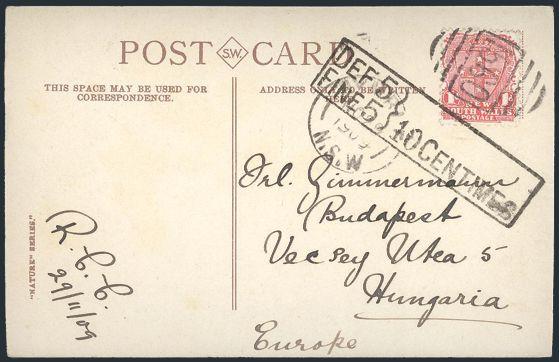 POST CARD
S.W.
THIS SPACE MAY BE USED FOR
CORRESPONDENCE.
ADDRESS ONLY TO BE WRITTEN
HERE.
DEF 5
FINE 5
10 CENTIMES
1909
N.S.W
NEW
SOUTH WALES
POSTAGE
Frl. Zimmermann
Budapest
Vecsey Utca 5
Hungaria
Europe
"NATURE" SERIES.
R. C. C.
29/11/09